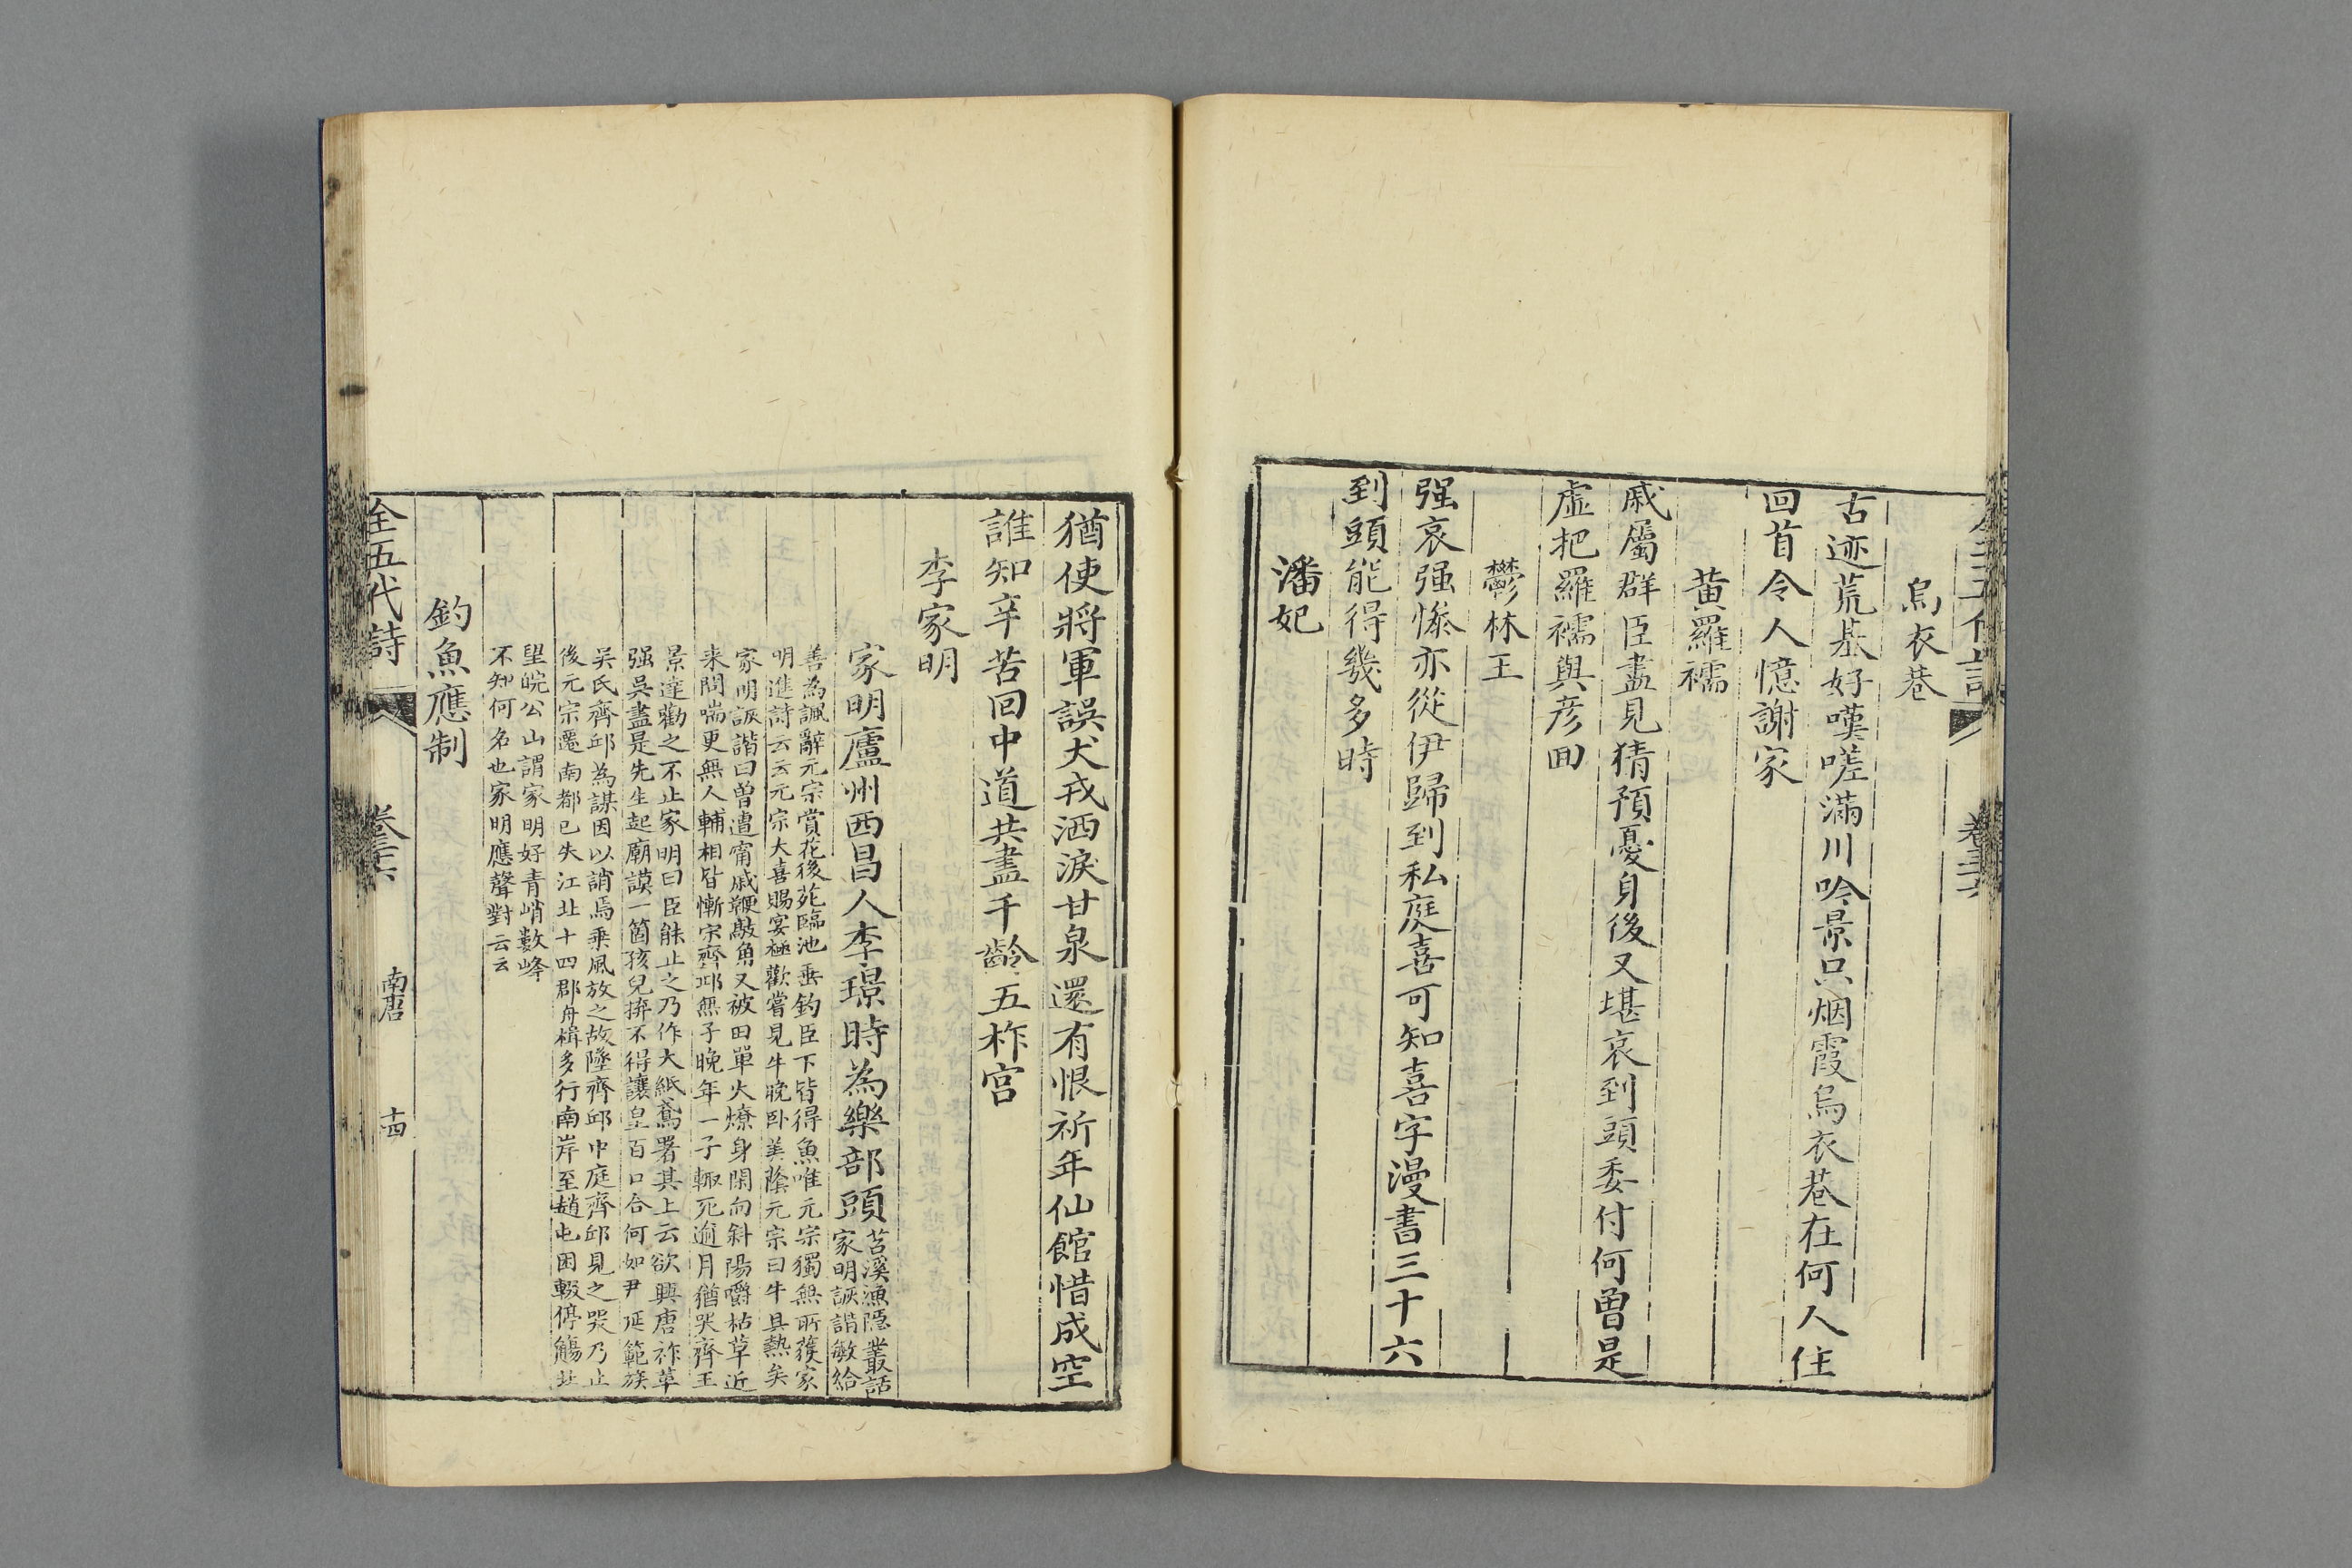 烏衣巷
古迹荒基好嘆嗟滿川吟景只烟霞烏衣巷在何人住
回首令人憶謝家
黃羅襦
戚屬群臣盡見猜預憂身後又堪哀到頭委付何曾是
虛把羅襦與彥回
鬱林王
强哀强慘亦從伊歸到私庭喜可知喜字漫書三十六
到頭能得幾多時
潘妃
猶使將軍誤犬戎洒淚甘泉還有恨祈年仙館惜成空
誰知辛苦回中道共盡千齡五柞宫
李家明
家明廬州西昌人李璟時為樂部頭
苕溪漁隱叢話
家明詼諧敏給
善為諷辭元宗賞花後苑臨池垂釣臣下皆得魚唯元宗獨無所獲家
明進詩云云元宗大喜賜宴極歡嘗見牛晚卧美蔭元宗曰牛且熱矣
家明詼諧曰曾遭甯戚鞭敲角又被田單火燎身閑向斜陽嚼枯草近
来問喘更無人輔相皆慚宋齊邱無子晚年一子輙死逾月猶哭齊王
景達勸之不止家明曰臣能止之乃作大紙鳶署其上云欲興唐祚革
强吳盡是先生起廟謨一箇孩兒拚不得讓皇百口合何如尹延範族
吳氏齊邱為謀因以誚焉乗風放之故墜齊邱中庭齊邱見之哭乃止
後元宗遷南都已失江北十四郡舟楫多行南岸至趙屯因輟停觴北
望皖公山謂家明好青峭數峰
不知何名也家明應聲對云云
釣魚應制
全五代詩
卷三十六
南唐
十四